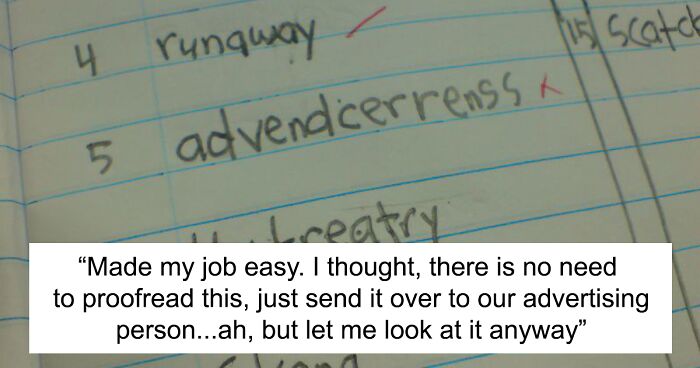 4 runaway
15 Scatch
5 advendcerrenss
“Made my job easy. I thought, there is no need
to proofread this, just send it over to our advertising
person...ah, but let me look at it anyway”